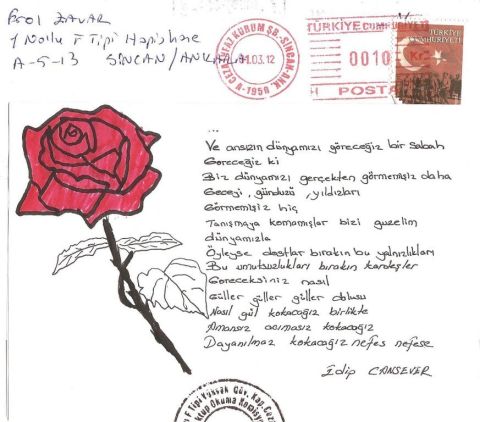 Erol ZAVAR
1 Nolu F Tipi Hapishane
A-5-13 SİNCAN/ANKARA
CEZA İNFAZ KURUM ŞB.-SİNCAN-ANK.
01.03.12
TÜRKİYE CUMHURİYETİ
0010
POSTA
TÜRKİYE
CUMHURİYETİ
...
Ve ansızın dünyamızı göreceğiz bir sabah
Göreceğiz ki
Biz dünyamızı gerçekten görmemişiz daha
Geceyi, gündüzü, yıldızları
Görmemişiz hiç
Tanışmaya komamışlar bizi güzelim
dünyamızla
Öyleyse dostlar bırakın bu yalnızlıkları
Bu umutsuzlukları bırakın kardeşler
Göreceksiniz nasıl
Güller güller güller dolusu
Nasıl gül kokacağız birlikte
Amansız acımasız kokacağız
Dayanılmaz kokacağız nefes nefese
Edip CANSEVER
F Tipi Yüksek Güv. Kap. Ceza
Mektup Okuma Komisyonu